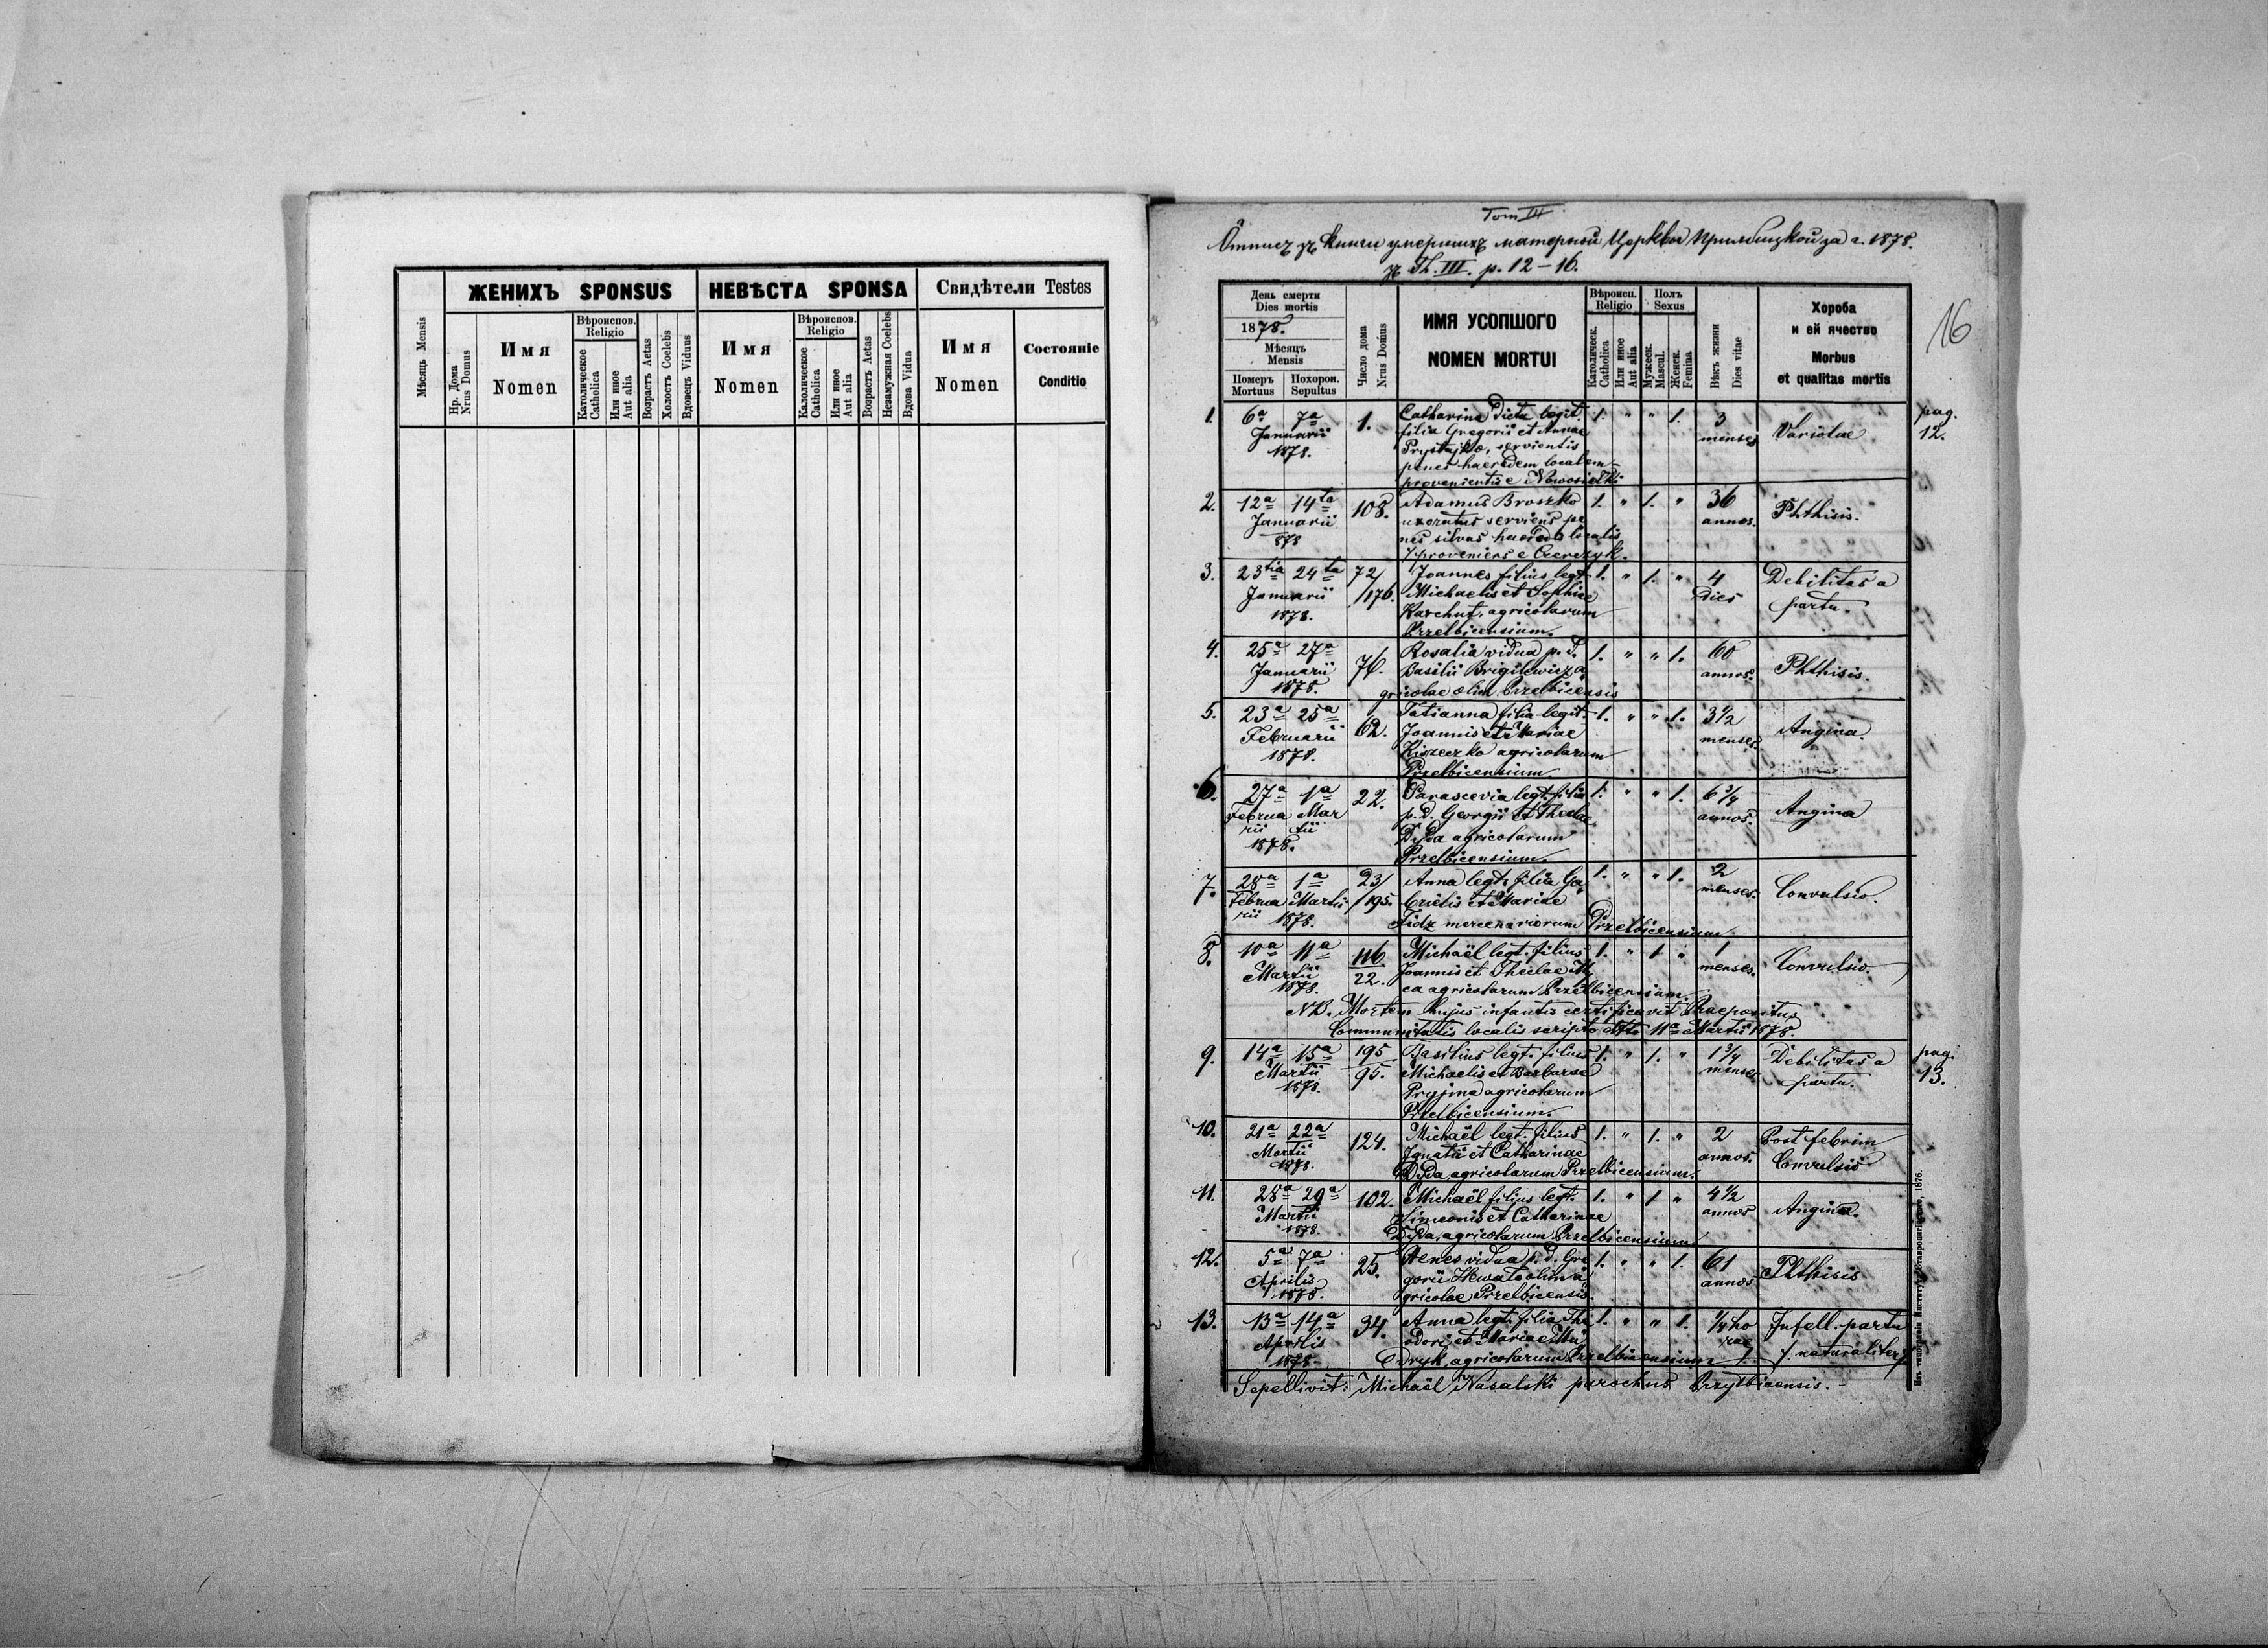 Мѣсяць Mensis
ЖЕНИХЪ SPONSUS
НЕВѢСТА SPONSA
Свидѣтели Testes
Нр. Дома
Nrus Domus
Имя
Nomen
Вѣроиспов.
Religio
Католическое
Catholica
Или иное
Aut alia
Возрастъ Aetas
Холостъ Coelebs
Вдовецъ Viduus
Имя
Nomen
Вѣроиспов.
Religio
Калолическое
Catholica
Или иное
Aut alia
Возрастъ Aetas
Незамужная Coelebs
Вдова Vidua
Имя
Nomen
Состоянiе
Conditio
Tom III.
Отписъ зъ книги умершихъ матерной Церкви Прилбицкой за г. 1878.
зъ Th. III. p. 12-16.
16
День смерти
Dies mortis
1878.
Мѣсяцъ
Mensis
Померъ
Mortuus
Похорон.
Sepultus
Число дома
Nrus Domus
ИМЯ УСОПШОГО
NOMEN MORTUI
Вѣроисп.
Religio
Католическ.
Catholica
Или иное
Aut alia
Полъ
Sexus
Мужеск.
Mascul.
Женск.
Femina
Вѣкъ жизни
Dies vitae
Хороба
и ей ячество
Morbus
et qualitas mortis
1. 6a 7a 1. Catharina dicta legit. 1. " " 1. 3 Variolae pag.
Januarii filia Gregorii et Annae menses 12.
1878. Prystajko, servientis
penes haeredem localem
provenientis e Nowosielki
2. 12a 14ta 108. Adamus Broszko 1. " 1. " 36 Phthisis.
Januarii uxoratus serviens pe annos.
878 nes silvas haeredis localis
proveniens e Czerczyk.
3. 23tia 24ta 72/ Joannes filius legt. 1. " 1. " 4 Debilitas a
Januarii /176. Michaelis et Sophiae dies partu.
1878. Karchut, agricolarum
Przelbicensium.
4. 25a 27a 76. Rosalia vidua p. d. 1. " " 1. 60 Phthisis.
Januarii Basilii Brigilewicz a annos.
1878. gricolae olim Przelbicensis
5. 23a 25a 62. Tatianna filia legit. 1. " " 1. 3 1/2 Angina.
Februarii Joannis et Mariae menses.
1878. Kiszeczko agricolarum
Przelbicensium
6. 27a 1a 22. Parascevia legt. filia 1. " " 1. 6 3/4 Angina
Februa Mar p. D. Georgii et Theclae annos.
rii tii Dyda agricolarum
1878. Przelbicensium.
7. 28a 1a 23/ Anna legt. filia Ga 1. " " 1. 2 Convulsio.
Februa Martii /195. brielis et Mariae menses.
rii 1878. Fidz mercenariorum Przelbicensium
8. 10a 11a 116 Michaël legt. filius 1. " 1 " 1 Convulsio.
Martii 22. Joannis et Theclae menses.
1878. ca agricolarum Przelbicensium.
NB. Mortem hujus infantis certificavit Praepositus
Communitatis localis scripto dtto 11a Martii 1878.
9. 14a 15a 195 Basilius legt. filius 1. " 1. " 1 3/4 Debilitas a pag.
Martii 95. Michaelis et Barbarae menses partu. 13.
1878. Pryjma agricolarum
Przelbicensium.
10. 21a 22a 124. Michaël legt. filius 1. " 1. " 2 Post febrim
Martii Ignatii et Catharinae annos. Convulsio
1878. Dyda, agricolarum Przelbicensium.
11. 28a 29a 102. Michaël filius legt. 1. " 1 " 4 1/2 Angina.
Martii Simeonis et Catharinae annos
1878. Dyda, agricolarum Przelbicensium
12. 5a 7a 25. Agnes vidua p. d. Gre 1. " " 1. 61 Phthisis
Aprilis gorii Hewat olim a annos
1878. gricolae Przelbicensis.
13. 13a 14a 34. Anna legt. filia The 1. " " 1. 1/4 ho Infell. partu
Aprilis odori et Mariae rae /. naturaliter ./
1878. agricolarum Przelbicensium
Sepelivit: Michaël Nasalski parochus Przylbicensis.
Изъ типографiи Института Ставропигiйского, 1876.